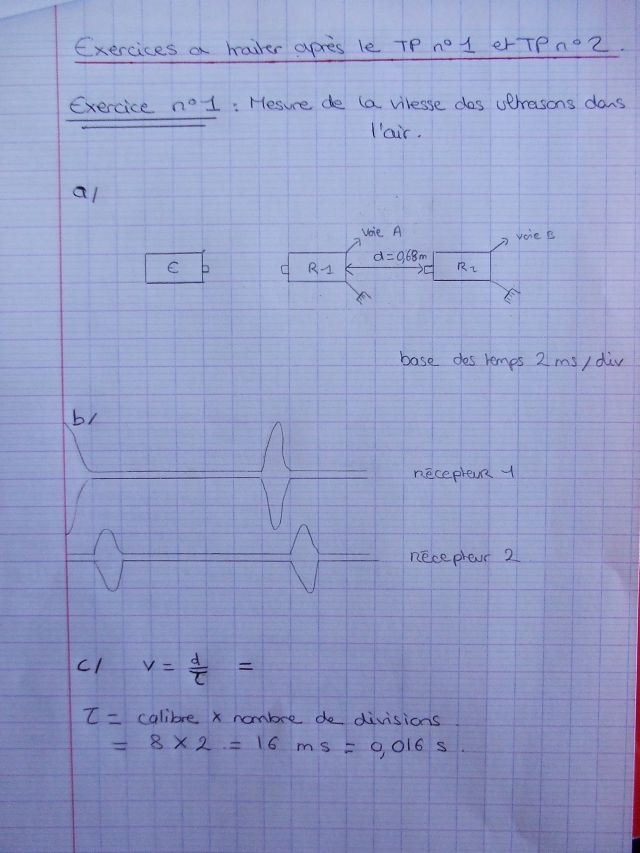 Exercices a traiter après le TP n°1 et TP n°2.
Exercice n°1 : Mesure de la vitesse des ultrasons dans
l'air.
a/
voie A
voie B
d=0,68m
E
R-1
R2
base des temps 2 ms/div
b/
récepteur 1
récepteur 2
c/ v = d/τ =
τ = calibre x nombre de divisions.
= 8 x 2 = 16 ms = 0,016 s.